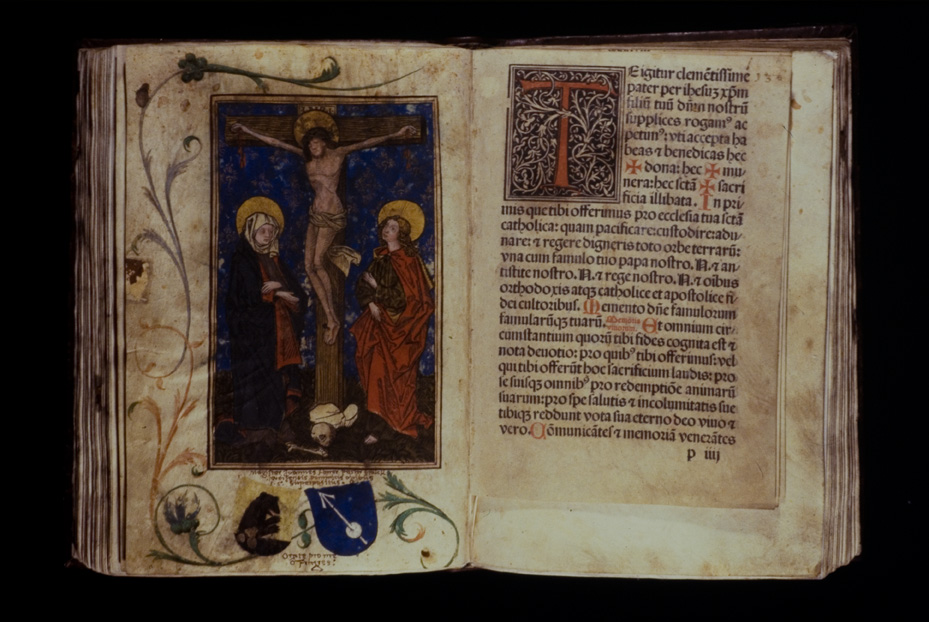 INRI
E igitur clemētissime
pater per ihesuʒ xp̄m
filiū tuū dn̄m nostrū
supplices rogamꝰ ac
petimꝰ: vti accepta ha
beas ⁊ benedicas hec
✠ dona: hec ✠ mu⸗
nera: hec sctā ✠ sacri
ficia illibata. In pri⸗
mis que tibi offerimus pro ecclesia tua sctā
catholica: quam pacificare: custodire: adu⸗
nare: ⁊ regere digneris toto orbe terrarū:
vna cum famulo tuo papa nostro. N. ⁊ an⸗
tistite nostro. N. ⁊ rege nostro. N. ⁊ oībus
orthodoxis atqꝫ catholice et apostolice fi⸗
dei cultoribus. Memento dn̄e famulorum
famularūqꝫ tuarū. Et omnium cir⸗
cumstantium quorū tibi fides cognita est ⁊
nota deuotio: pro quibꝰ tibi offerimus: vel
qui tibi offerūt hoc sacrificium laudis: pro
se suisqꝫ omnibꝰ pro redemptiōe animarū
suarum: pro spe salutis ⁊ incolumitatis sue
tibiqꝫ reddunt vota sua eterno deo viuo ⁊
vero. Cōmunicātes ⁊ memoriā venerātes
p iiij
Orate pro